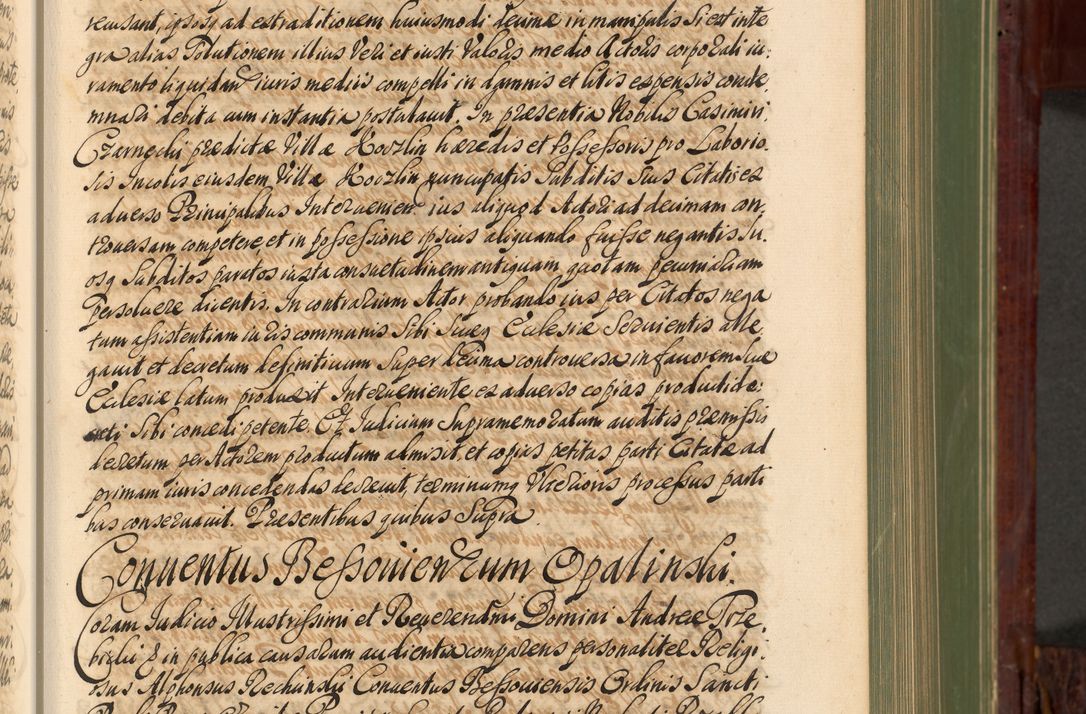 recusant, ipsosq ad extraditionem huiusmodi decimæ in manipulis si est inte
gra alias solutionem illius veri et iusti valoris medio Actoris corporali iu:
ramento liquidam iuris mediis compelli in damnis et litis expensis conde
mnari debita cum instantia postulauit. In præsentia Nobilis Casimiri
Czarnęcki prædictæ Villæ Korzlin hæredis et Possessoris pro Laborio.
sis Incolis eiusdem Villæ Korzlin nuncupatis Subditis suis Citatis ex
aduerso Principalibus Interuenien. ius aliquod Actori ad decimam con
trouersam competere et in possessione ipsius aliquando fuisse negantis su.
osq Subditos paratos iuxta consuetudinem antiquam quotam pecuniariam
persoluere dicentis. In contrarium Actor probando ius per Citatos nega
tum assistentiam iuris communis sibi suæq Ecclesiæ seruientis alle
gauit et decretum definitiuum super decima controuersa in fauorem suæ
Ecclesiæ latum produxit Interueniente ex aduerso copias producti de:
creti sibi concedi petente. Et Iudicium supramemoratum auditis præmissis
decretum per Actorem productum admisit, et copias petitas parti Citatæ ad
primam iuris concedendas decreuit, terminumq vlterioris processus parti
bus conseruauit. Præsentibus quibus supra
Conuentus Bessouiensis cum Opalinski.
Coram Iudicio Illustrissimi et Reuerendissimi Domini Andreæ Trze
bicki & in publica causarum audientia comparens personaliter Religi:
osus Alphonsus Rechinski Conuentus Bessouiensis Ordinis Sancti